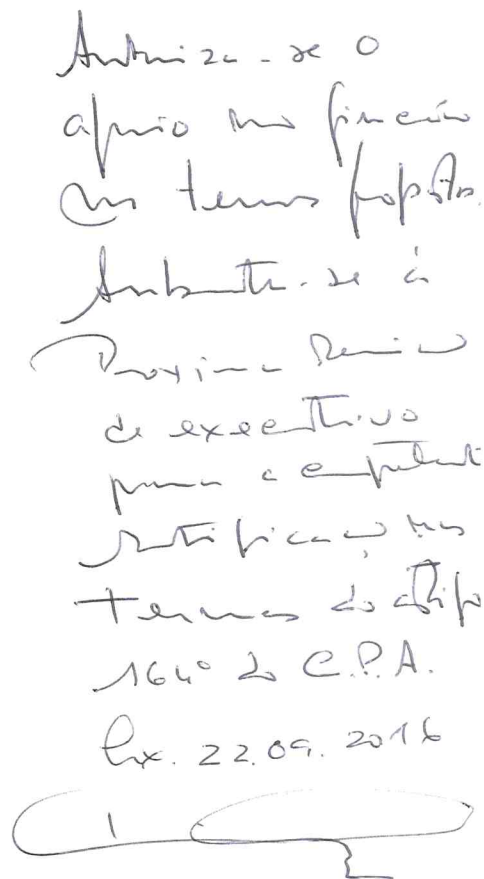 Autoriza-se o
apoio no financeiro
nos termos propostos.
Submeta-se à
Próxima Reunião
de executivo
para a competente
ratificação nos
termos do artigo
164º do C.P.A.
Lx. 22.09.2016